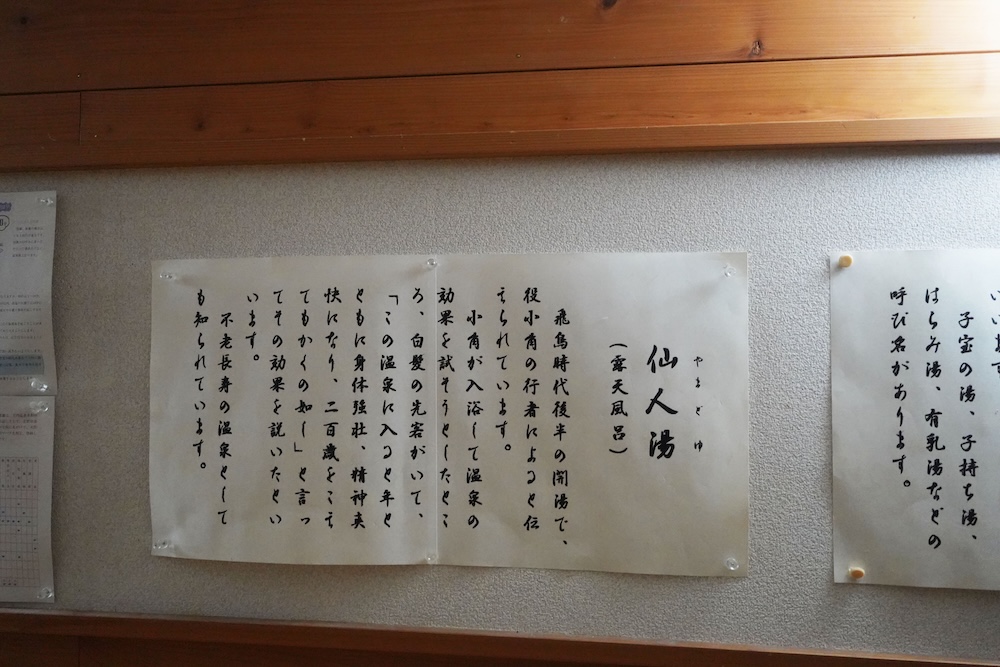 子宝の湯、子持ち湯、
はらみ湯、有乳湯などの
呼び名があります。
やまど ゆ
仙人湯
(露天風呂)
飛鳥時代後半の開湯で、
役小角の行者によると伝
えられています。
小角が入浴して温泉の
効果を試そうとしたとこ
ろ、白髪の先客がいて、
「この温泉に入ると年と
ともに身体強壮、精神爽
快になり、二百歳をこえ
てもかくの如し」と言っ
てその効果を説いたとい
います。
不老長寿の温泉として
も知られています。